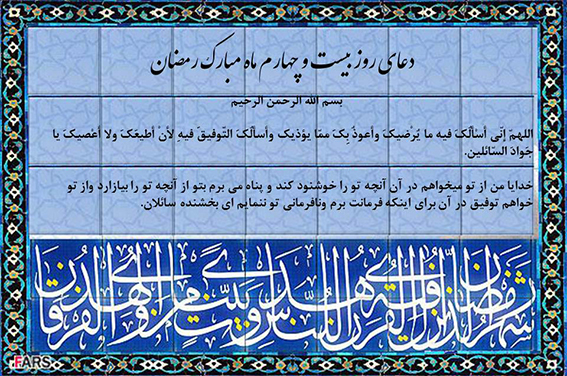 دعای روز بیست و چهارم ماه مبارک رمضان
بسم الله الرحمن الرحیم
اللهمّ إنّی أسألُکَ فیه ما یُرْضیکَ وأعوذُ بِکَ ممّا یؤذیک وأسألُکَ التّوفیقَ فیهِ لأنْ أطیعَکَ ولا أعْصیکَ یا
جَوادَ السّائلین.
خدایا من از تو میخواهم در آن آنچه تو را خوشنود کند و پناه می برم بتو از آنچه تو را بیازارد واز تو
خواهم توفیق در آن برای اینکه فرمانت برم ونافرمانی تو ننمایم ای بخشنده سائلان.
شهر رمضان الذی انزل فیه القرآن هدی للناس و بینت من الهدی و الفرقان
FARS